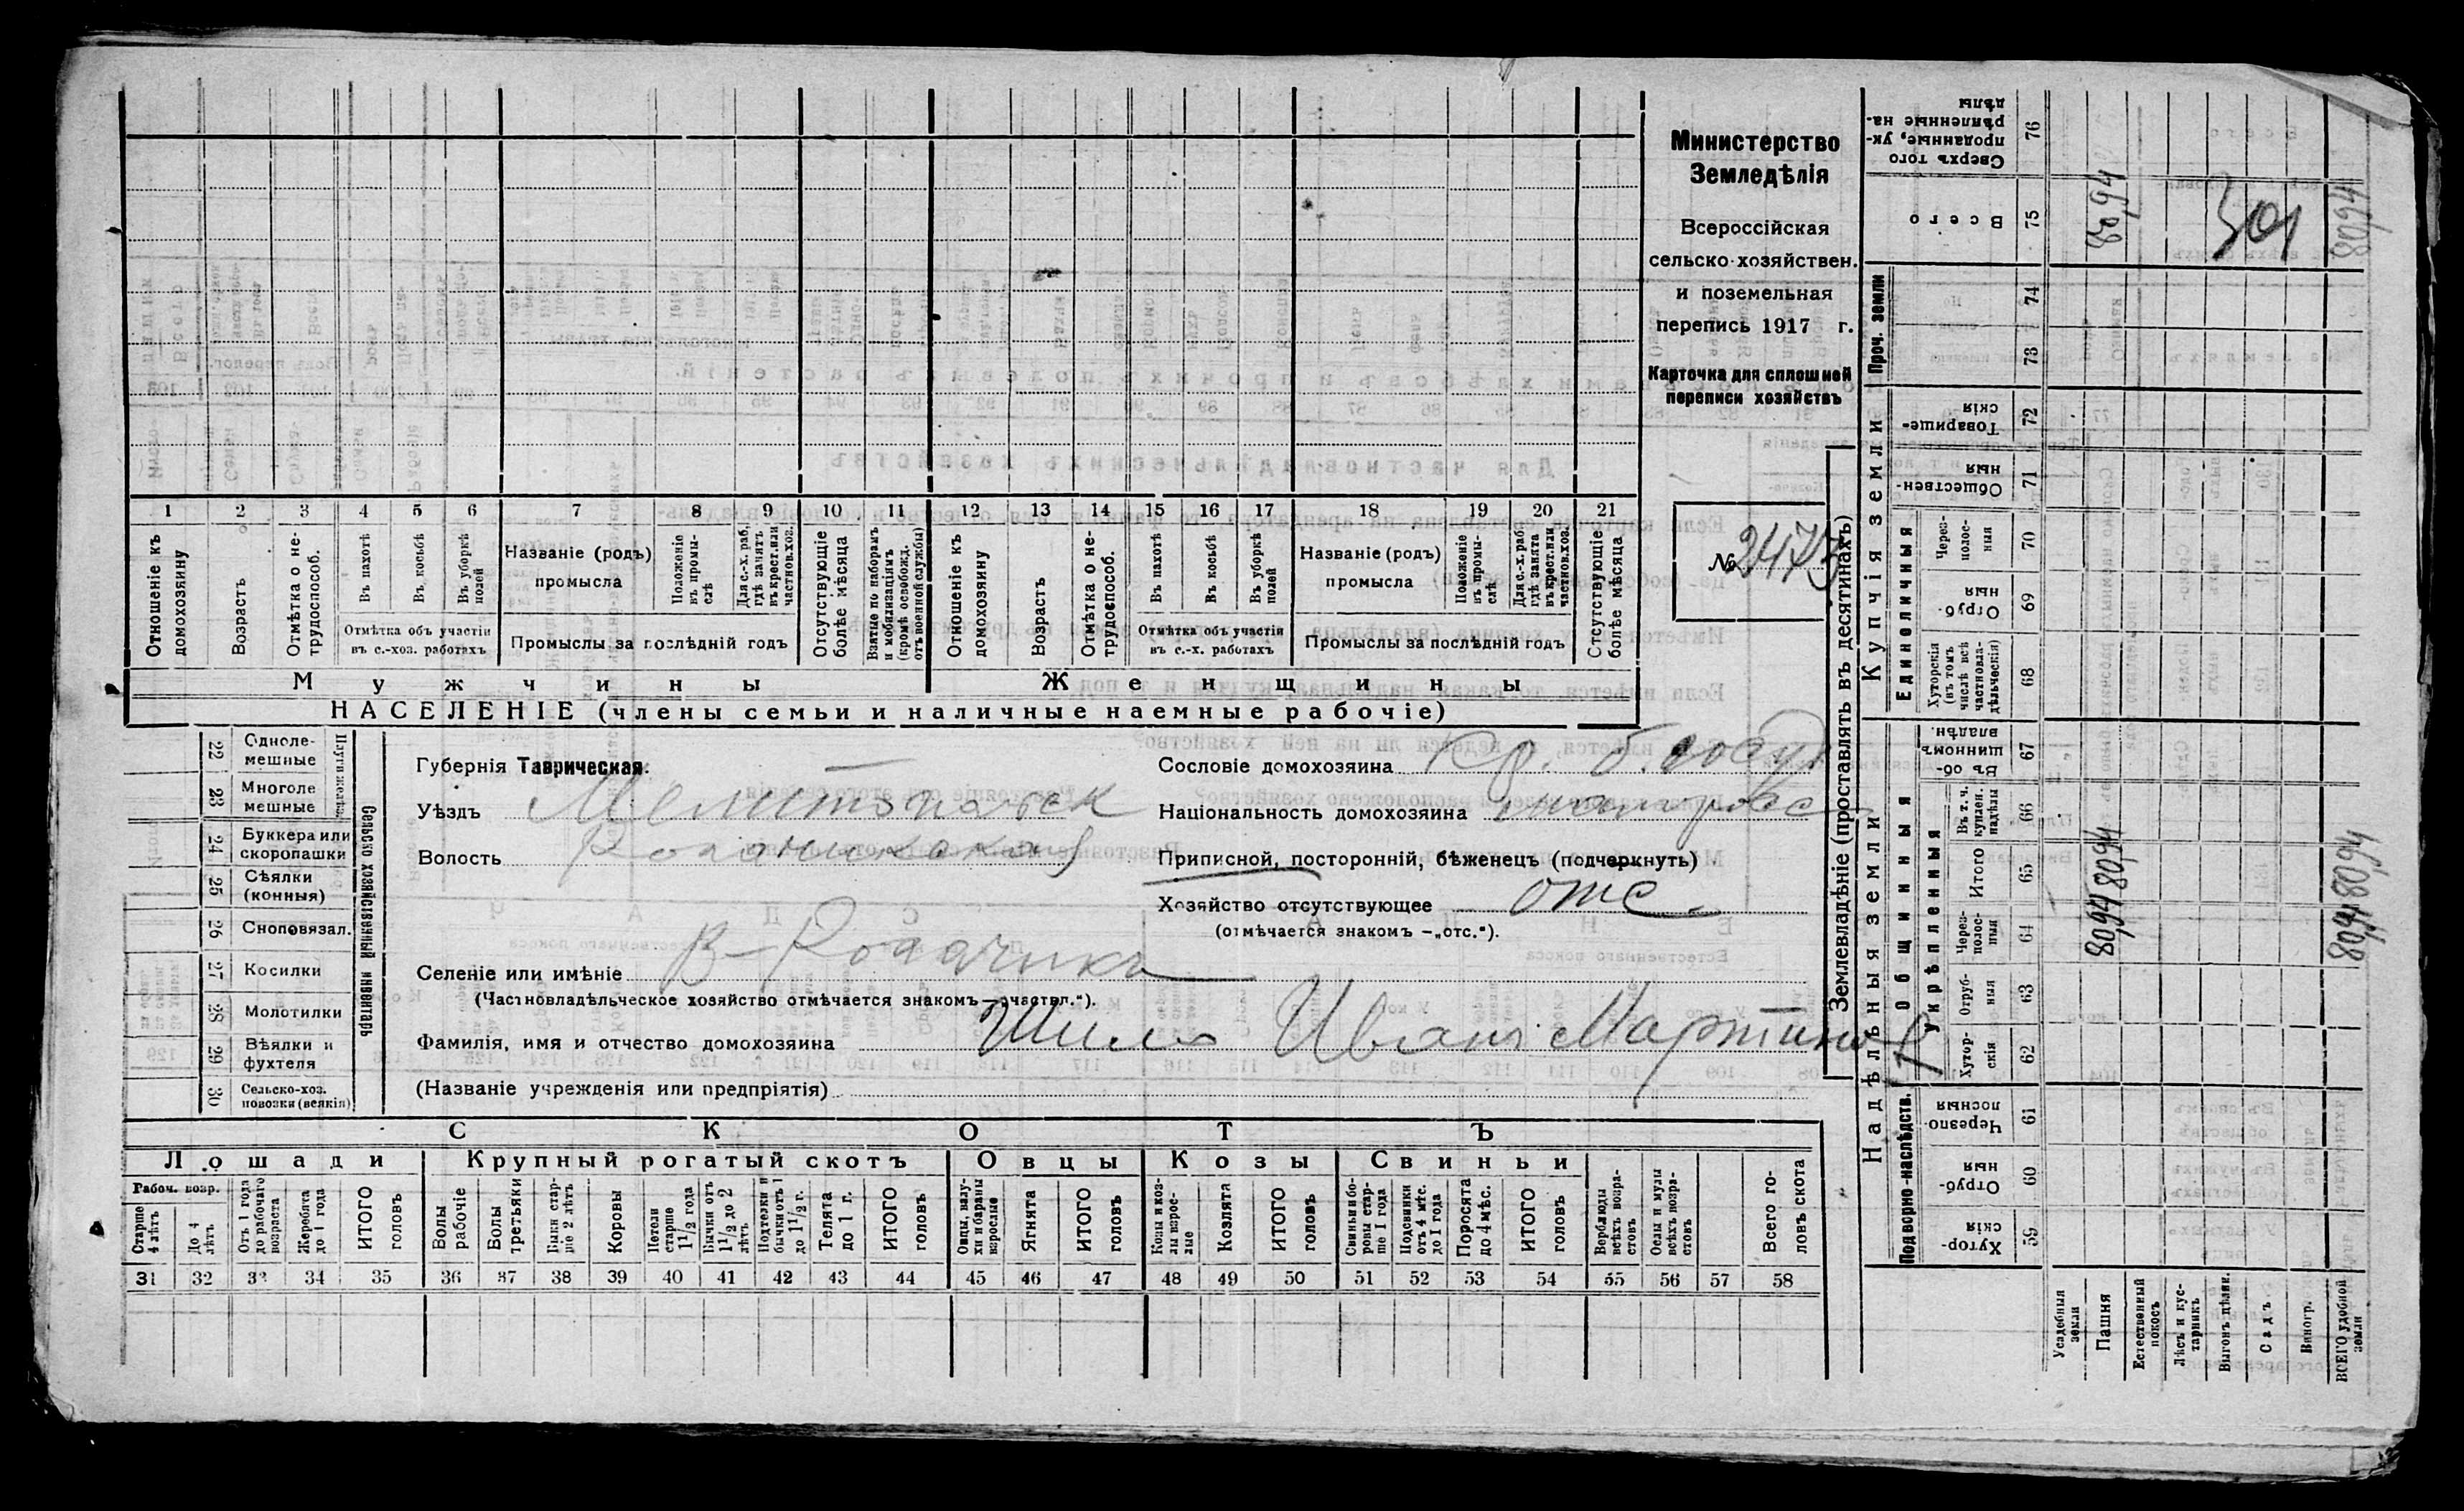 Министерство
Земледѣлія
Всероссійская
сельско-хозяйствен.
и поземельная
перепись 1917 г.
Карточка для сплошной
переписи хозяйствъ
№ 2473
1 2 3 4 5 6 7 8 9 10 11 12 13 14 15 16 17 18 19 20 21
Отношеніе къ домохозяину
Возрастъ
Отмѣтка о не-трудоспособ.
Въ пахотѣ
Въ косьбѣ
Въ уборкѣ полей
Отмѣтка объ участіи въ с.-хоз. работахъ
Названіе (родъ) промысла
Положеніе въ промы-слѣ
Для с.-х. раб., гдѣ занятъ въ крест. или частнов. хоз.
Промыслы за послѣдній годъ
Отсутствующіе болѣе мѣсяца
Взятые по наборамъ и мобилизаціямъ (кромѣ освобожд. отъ военной службы)
Отношеніе къ домохозяину
Возрастъ
Отмѣтка о не-трудоспособ.
Въ пахотѣ
Въ косьбѣ
Въ уборкѣ полей
Отмѣтка объ участіи въ с.-х. работахъ
Названіе (родъ) промысла
Положеніе въ промы-слѣ
Для с.-х. раб. гдѣ занята въ крест. или частнов. хоз.
Промыслы за послѣдній годъ
Отсутствующіе болѣе мѣсяца
Мужчины Женщины
НАСЕЛЕНІЕ (члены семьи и наличные наемные рабочіе)
22 Одноле-мешные
23 Многоле мешные
24 Буккера или скоропашки
25 Сѣялки (конныя)
26 Сноповязал.
27 Косилки
28 Молотилки
29 Вѣялки и фухтеля
30 Сельско-хоз. повозки (всякія)
Сельско хозяйственный инвентарь
Губернія Таврическая.
Уѣздъ Мелитопольск
Волость
Селеніе или имѣніе В-Рогачикъ
(Частновладѣльческое хозяйство отмѣчается знакомъ —„частвл.“).
Фамилія, имя и отчество домохозяина Шило Иванъ Мартинов
(Названіе учрежденія или предпріятія)
Сословіе домохозяина Кр. б. госуд
Національность домохозяина малоросс
Приписной, посторонній, бѣженецъ (подчеркнуть)
Хозяйство отсутствующее отс.
(отмѣчается знакомъ —„отс.“).
СКОТЪ
Лошади Крупный рогатый скотъ Овцы Козы Свиньи
Рабоч. возр.
Старше 4 лѣтъ
До 4 лѣтъ
Отъ 1 года до рабочаго возраста
Жеребята до 1 года
ИТОГО головъ
Волы рабочіе
Волы третьяки
Быки стар-ше 2 лѣтъ
Коровы
Нетели старше 1 1/2 года
Бычки отъ 1 1/2 до 2 лѣтъ
Подтелки и бычки отъ 1 до 1 1/2 г.
Телята до 1 г.
ИТОГО головъ
Овцы, валу-хи и бараны взрослые
Ягнята
ИТОГО головъ
Козы и коз-лы взрос-лые
Козлята
ИТОГО головъ
Свиньи и бо-ровы стар-ше 1 года
Подсвинки отъ 4 мѣс. до 1 года
Поросята до 4 мѣс.
ИТОГО головъ
Верблюды всѣхъ возра-стовъ
Ослы и мулы всѣхъ возра-стовъ
Всего го-ловъ скота
31 32 33 34 35 36 37 38 39 40 41 42 43 44 45 46 47 48 49 50 51 52 53 54 55 56 57 58
Землевладѣніе (проставлять въ десятинахъ)
Надѣльныя земли
Купчія земли
Проч. земли
Подворно-наслѣдств.
Общинныя
Укрѣпленныя
Единоличныя
Сверхъ того проданные, ук-рѣпленные на-дѣлы 76
Всего 75
74
73
Товарище-скія 72
Обществен-ныя 71
Через-полос-ныя 70
Отруб-ныя 69
Хуторскія (въ томъ числѣ всѣ частновла-дѣльческія) 68
Въ об-щинномъ владѣн. 67
Въ т. ч. куплен. надѣлы 66
Итого 65
Через-полос-ныя 64
Отруб-ныя 63
Хутор-скія 62
Черезпо-лосныя 61
Отруб-ныя 60
Хутор-скія 59
Усадебныя земли
Пашня
Естественный покосъ
Лѣсъ и кус-тарникъ
Выгонъ цѣлин.
Садъ
Виногр.
ВСЕГО удобной земли
80,94
301
80,94
80,94 80,94
80,94 80,94